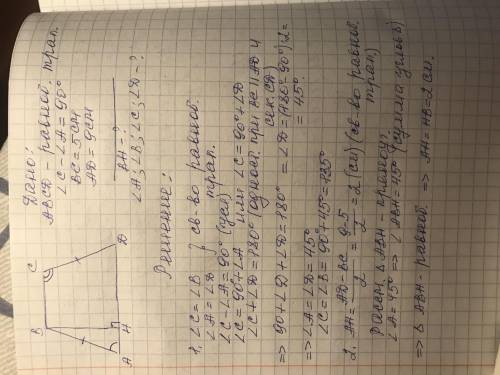 Дано:
ABCD - равноб. трап.
∠C-∠A=90°
BC=5см
AD=9см
BH-?
∠A; ∠B; ∠C; ∠D-?
B
C
A
H
D
Решение:
1. ∠C=∠B } св-во равноб.
∠A=∠D трап.
∠C-∠A=90° (усл)
∠C=90°+∠A или ∠C=90°+∠D
∠C+∠D=180° (одност. при BC||AD и
сек. CD)
=> 90+∠D+∠D=180° =∠D=(180°-90°):2=
=45°.
=> ∠A=∠D=45°
∠C=∠B=90+45°=135°
2. AH=AD-BC/2=9-5/2=2(см) (св-во равноб.
трап)
Рассм. △ABH - прямоуг.
∠A=45° => ∠ABH=45° (сумма углов)
=> △ABH равноб. => AH=HB=2см.